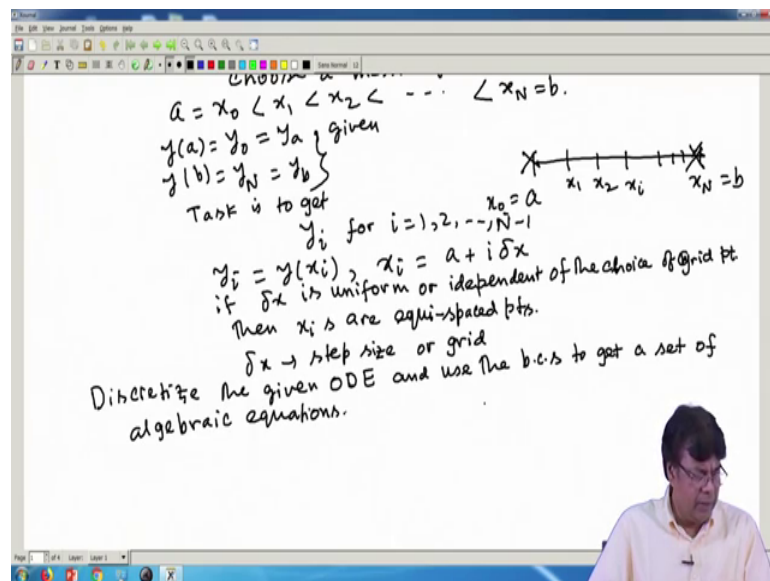 Journal
File Edit View Journal Tools Options Help
Sans Normal 12
choose a
a = x₀ < x₁ < x₂ < ---- < x_N = b.
y(a) = y₀ = y_a } given
y(b) = y_N = y_b }
x₁ x₂ x_i x_N = b
x₀ = a
Task is to get
y_i for i = 1, 2, --, N-1
y_i = y(x_i), x_i = a + i δx
if δx is uniform or idependent of the choice of grid pt
Then x_i s are equi-spated pts.
δx → step size or grid
Discretize the given ODE and use the b.c.s to get a set of
algebraic equations.
Page 1 of 4 Layer: Layer 1